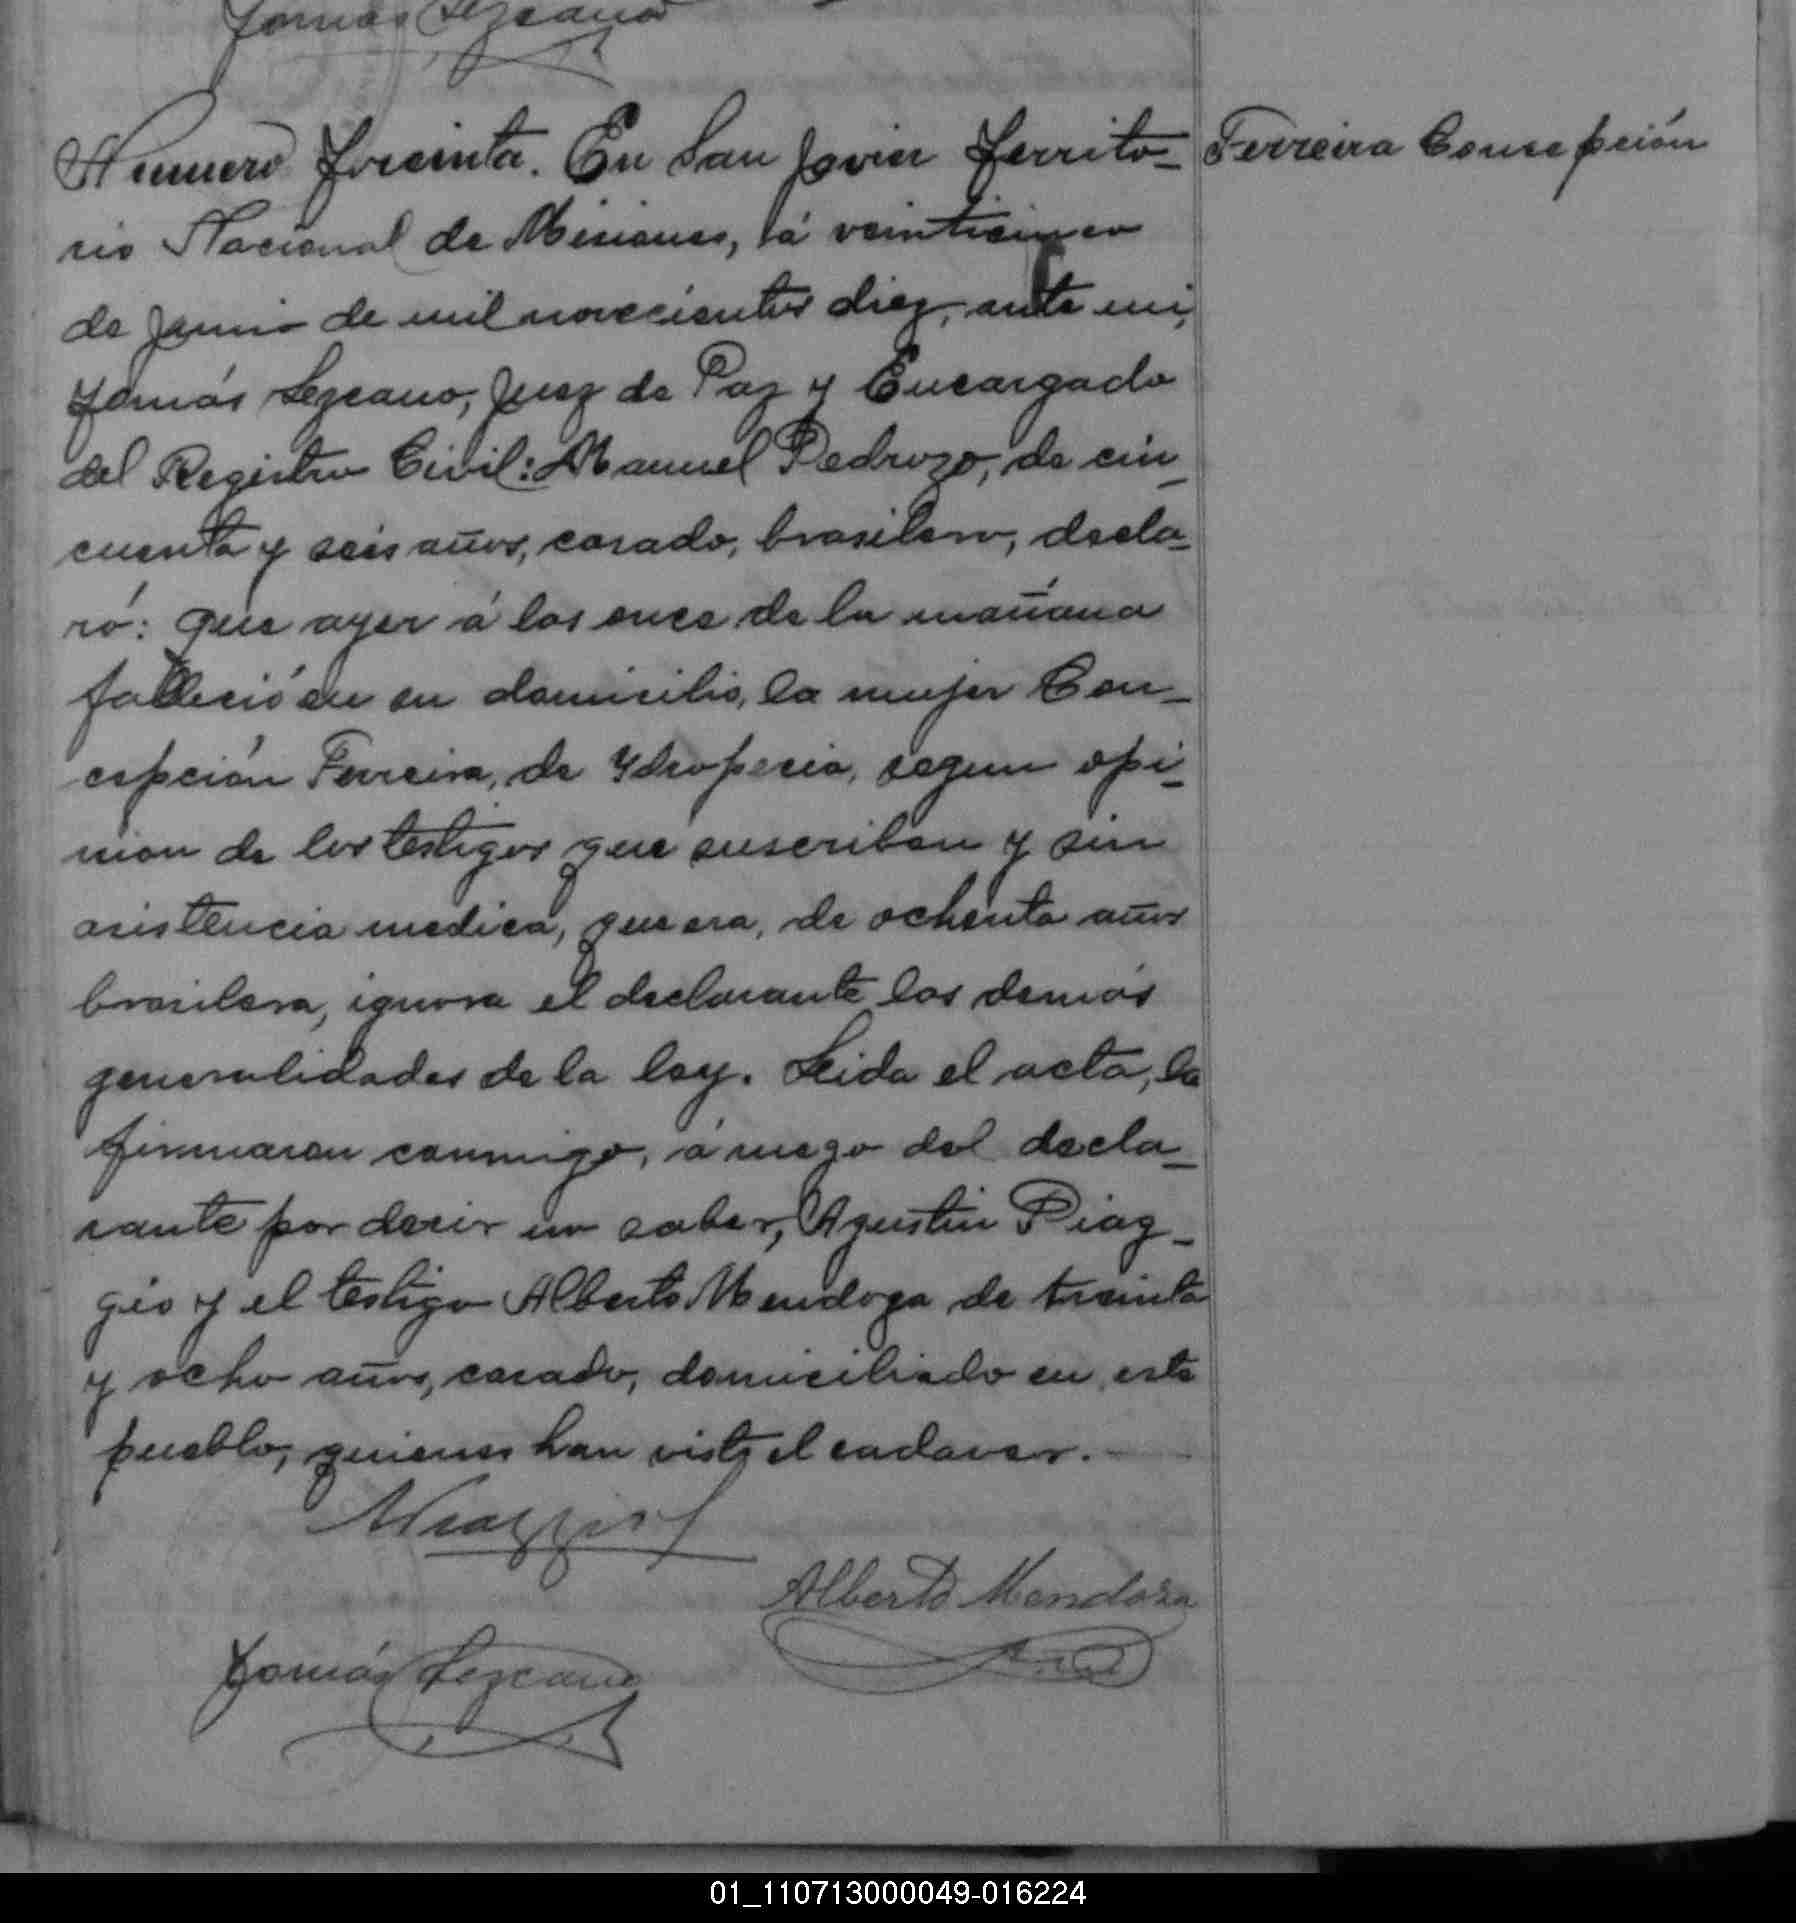 Tomás Lezcano
Numero Treinta. En San Javier Territo-
Ferreira Consepción
rio Nacional de Misiones, á veinticinco
de Junio de mil novecientos diez, ante mi,
Tomás Lezcano, Juez de Paz y Encargado
del Registro Civil: Manuel Pedrozo, de cin-
cuenta y seis años, casado, brasilero, decla-
ró: que ayer á las once de la mañana
falleció en su domicilio, la mujer Con-
cepción Ferreira, de Ydropecia, segun opi-
nion de los testigos que suscriben y sin
asistencia medica, que era, de ochenta años
brasilera, ignora el declarante las demás
generalidades de la ley. Leida el acta, la
firmaron conmigo, á ruego del decla-
rante por decir no saber, Agustin Piag-
gio y el testigo Alberto Mendoza de treinta
y ocho años, casado, domiciliado en este
pueblo, quienes han visto el cadaver.
APiaggio
Alberto Mendoza
Tomás Lezcano
01_110713000049-016224